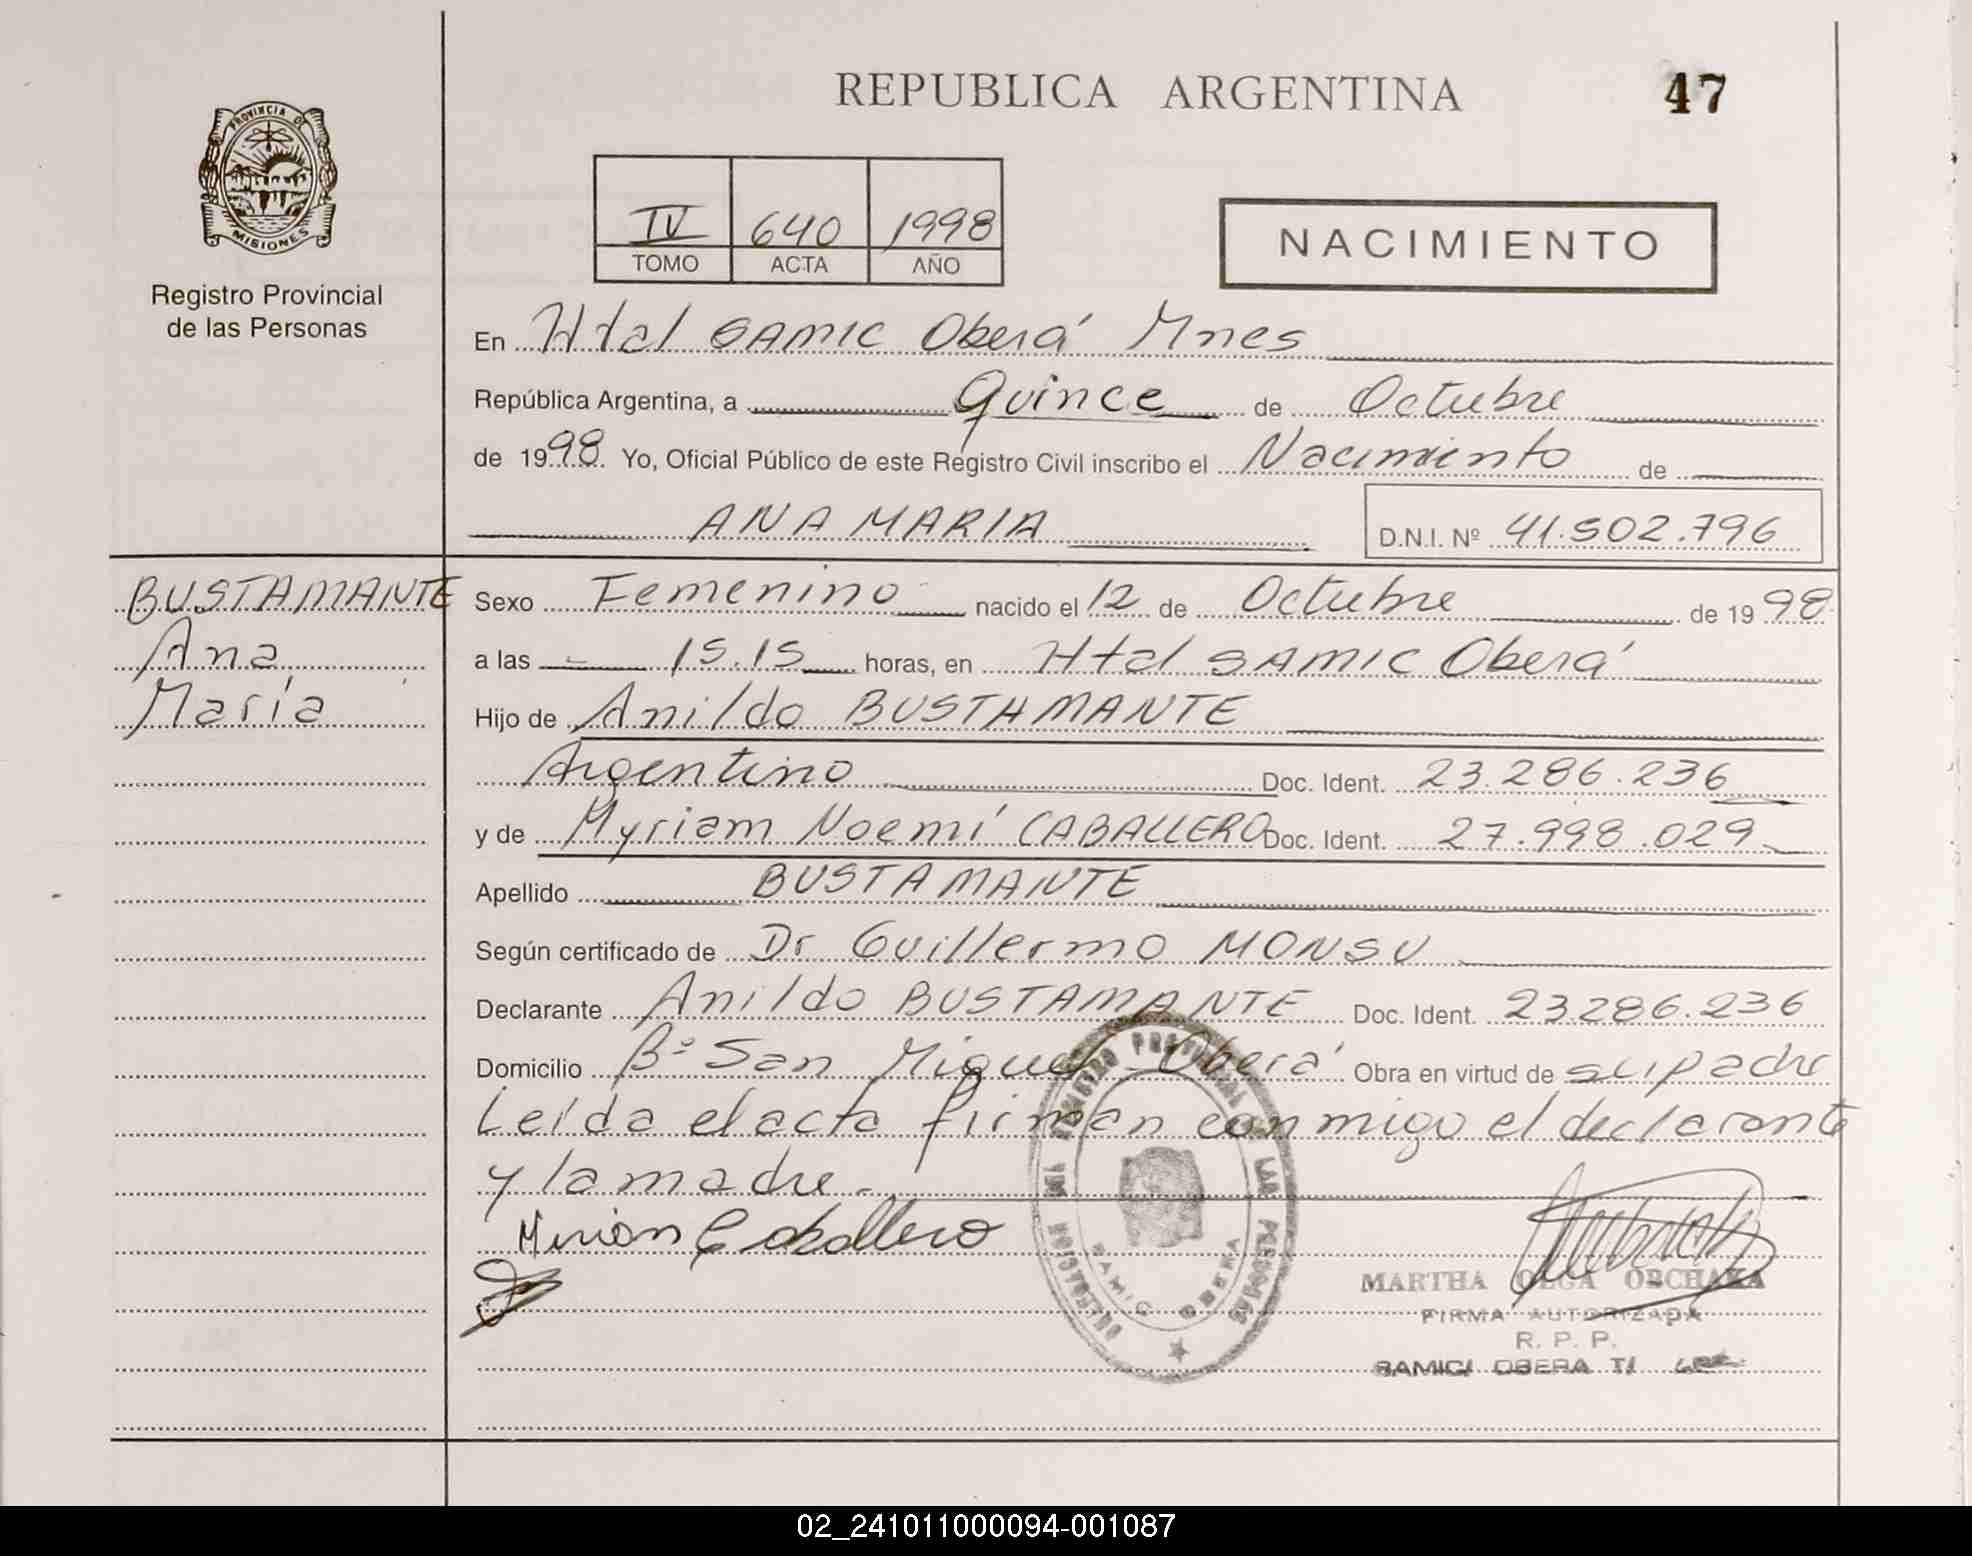 REPUBLICA ARGENTINA
47
PROVINCIA DE
MISIONES
Registro Provincial
de las Personas
IV 640 1998
TOMO ACTA AÑO
NACIMIENTO
En Htal SAMIC Oberá Mnes
República Argentina, a Quince de Octubre
de 1998. Yo, Oficial Público de este Registro Civil inscribo el Nacimiento de
ANA MARIA D.N.I. Nº 41.502.796
BUSTAMANTE
Ana
María
Sexo Femenino nacido el 12 de Octubre de 1998
a las 15.15 horas, en Htal SAMIC Oberá
Hijo de Anildo BUSTAMANTE
Argentino Doc. Ident. 23.286.236
y de Myriam Noemí CABALLERO Doc. Ident. 27.998.029
Apellido BUSTAMANTE
Según certificado de Dr Guillermo MONSU
Declarante Anildo BUSTAMANTE Doc. Ident. 23.286.236
Domicilio Bº San Miguel - Oberá Obra en virtud de su padre
Leída el acta firman conmigo el declarante
y la madre.-
Mirian Caballero
REGISTRO PROVINCIAL DE LAS PERSONAS
SAMIC OBERA
MARTHA OLGA
FIRMA AUTORIZADA
R. P. P.
SAMIC OBERA
02_241011000094-001087